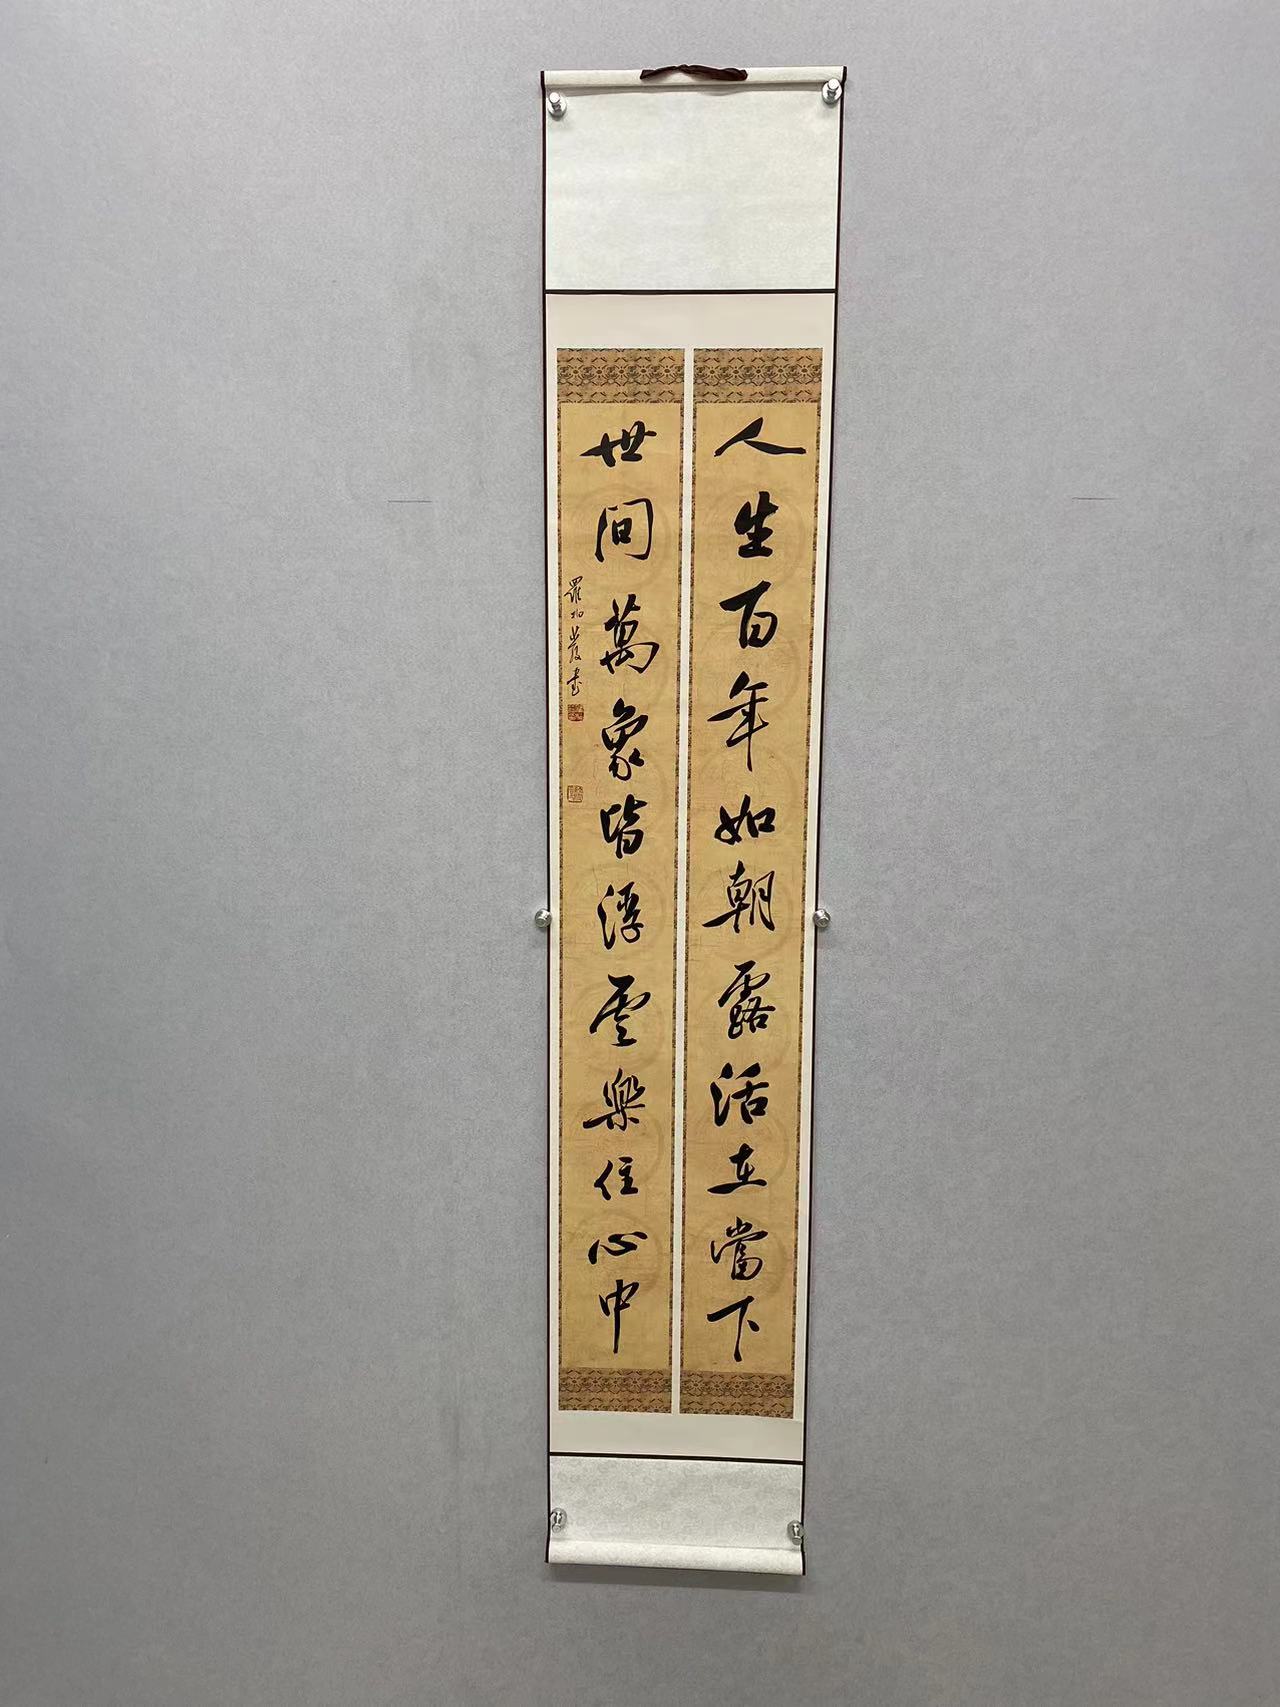 人生百年如朝露活在當下
世間萬象皆浮雲樂住心中
羅
書